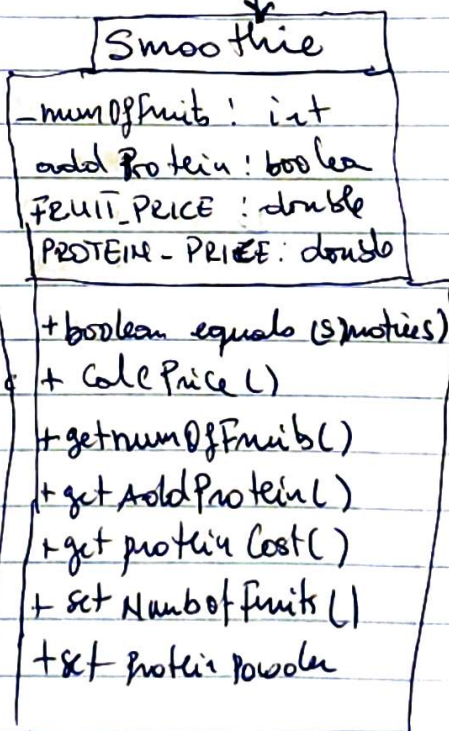 Smoothie
-numOfFruits : int
add Protein : boolea
FRUIT_PRICE : double
PROTEIN - PRICE : double
+ boolean equals (Smooties)
+ CalcPrice ()
+ getnumOfFruits()
+ get AddProtein()
+ get protein Cost()
+ set NumbofFruits()
+ set Protein Powder